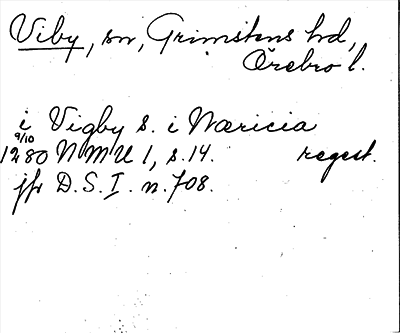 Viby, sn, Grimstens hd,
Örebro l.
i Vigby s. i Næricia
9/10
1280 NMU 1, s. 14. regest.
jfr D.S.I. n. 708.